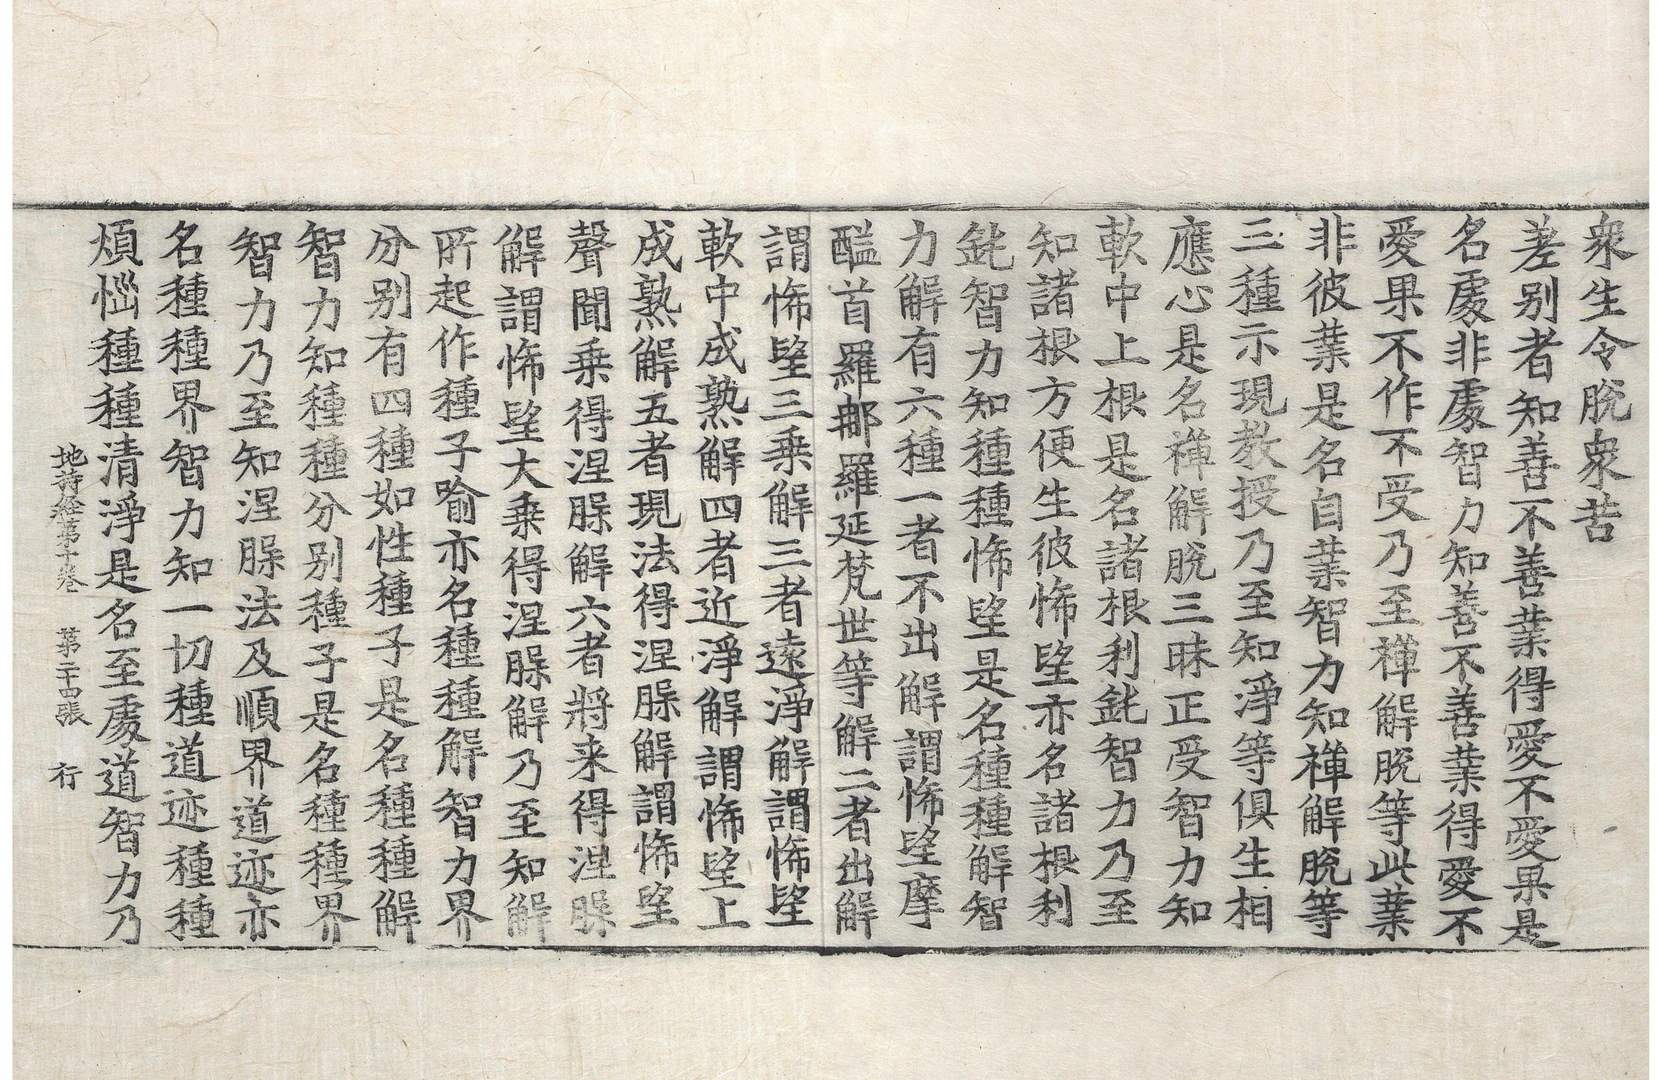 衆生令脫衆苦
差別者知善不善業得愛不愛果是
名處非處智力知善不善業得愛不
愛果不作不受乃至禪解脫等此業
非彼業是名自業智力知禪解脫等
三種示現教授乃至知淨等俱生相
應心是名禪解脫三昧正受智力知
軟中上根是名諸根利鈍智力乃至
知諸根方便生彼悕望亦名諸根利
鈍智力知種種悕望是名種種解智
力解有六種一者不出解謂悕望摩
醯首羅那羅延梵世等解二者出解
謂悕望三乘解三者遠淨解謂悕望
軟中成熟解四者近淨解謂悕望上
成熟解五者現法得涅槃解謂悕望
聲聞乘得涅槃解六者將来得涅槃
解謂悕望大乘得涅槃解乃至知解
所起作種子喻亦名種種解智力界
分別有四種如性種子是名種種解
智力知種種分別種子是名種種界
智力乃至知涅槃法及順界道迹亦
名種種界智力知一切種道迹種種
煩惱種種清淨是名至處道智力乃
地持經第十卷 第二十四張 行